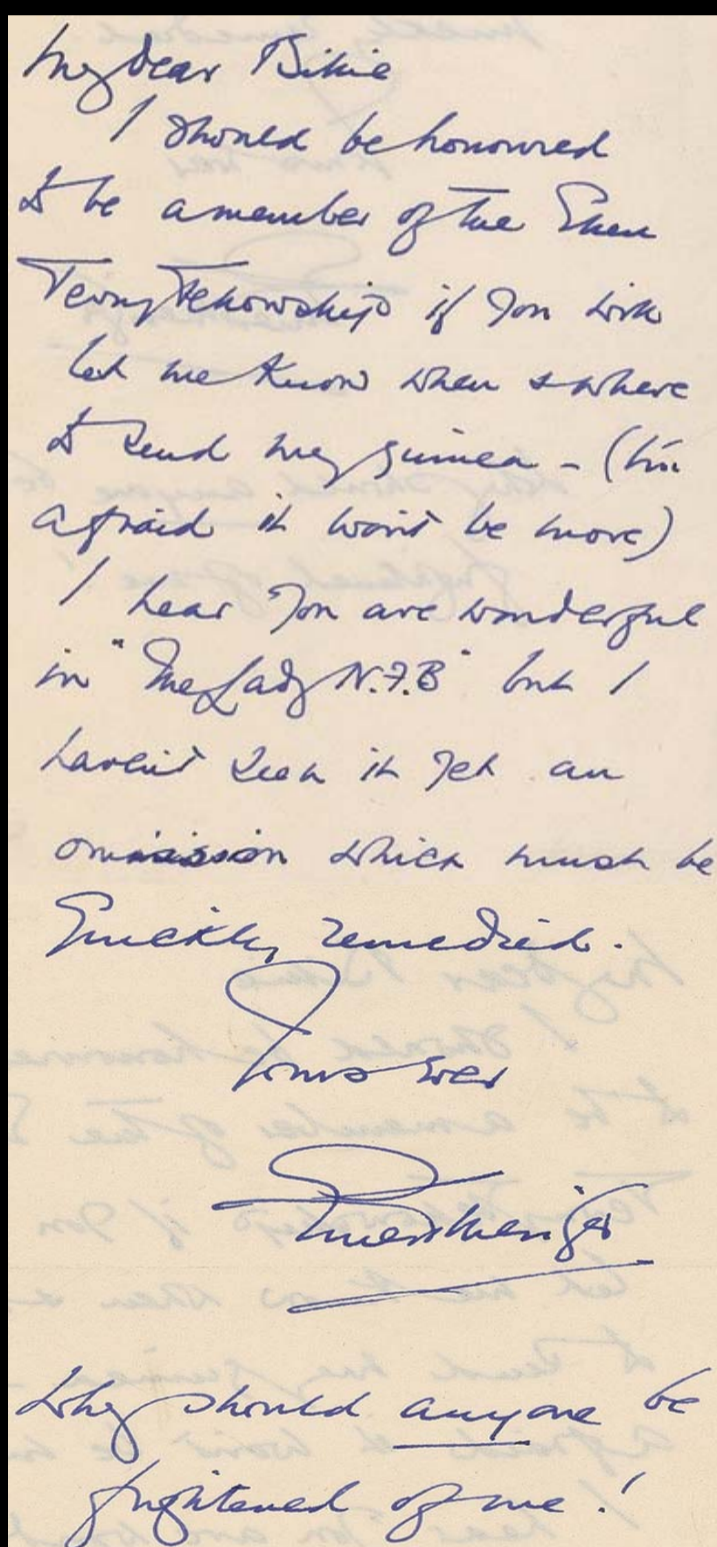 My dear Billie
I should be honoured
to be a member of the Ellen
Terry Fellowship if you will
let me know when & where
to send my guinea - (I'm
afraid it won't be more)
I hear you are wonderful
in "The Lady N.F.B" but I
haven't seen it yet an
omission which must be
quickly remedied.
Yours ever
Why should anyone be
frightened of me!